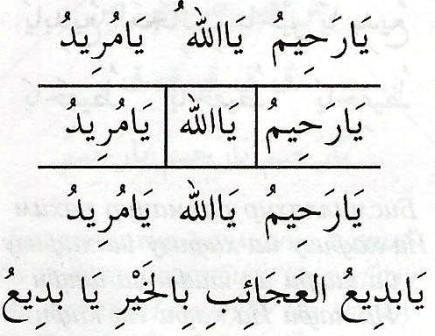 يَارَحِيمُ يَااللهُ يَامُرِيدُ
يَارَحِيمُ يَااللهُ يَامُرِيدُ
يَارَحِيمُ يَااللهُ يَامُرِيدُ
يَابَدِيعَ العَجَائِبِ بِالخَيْرِ يَا بَدِيعُ